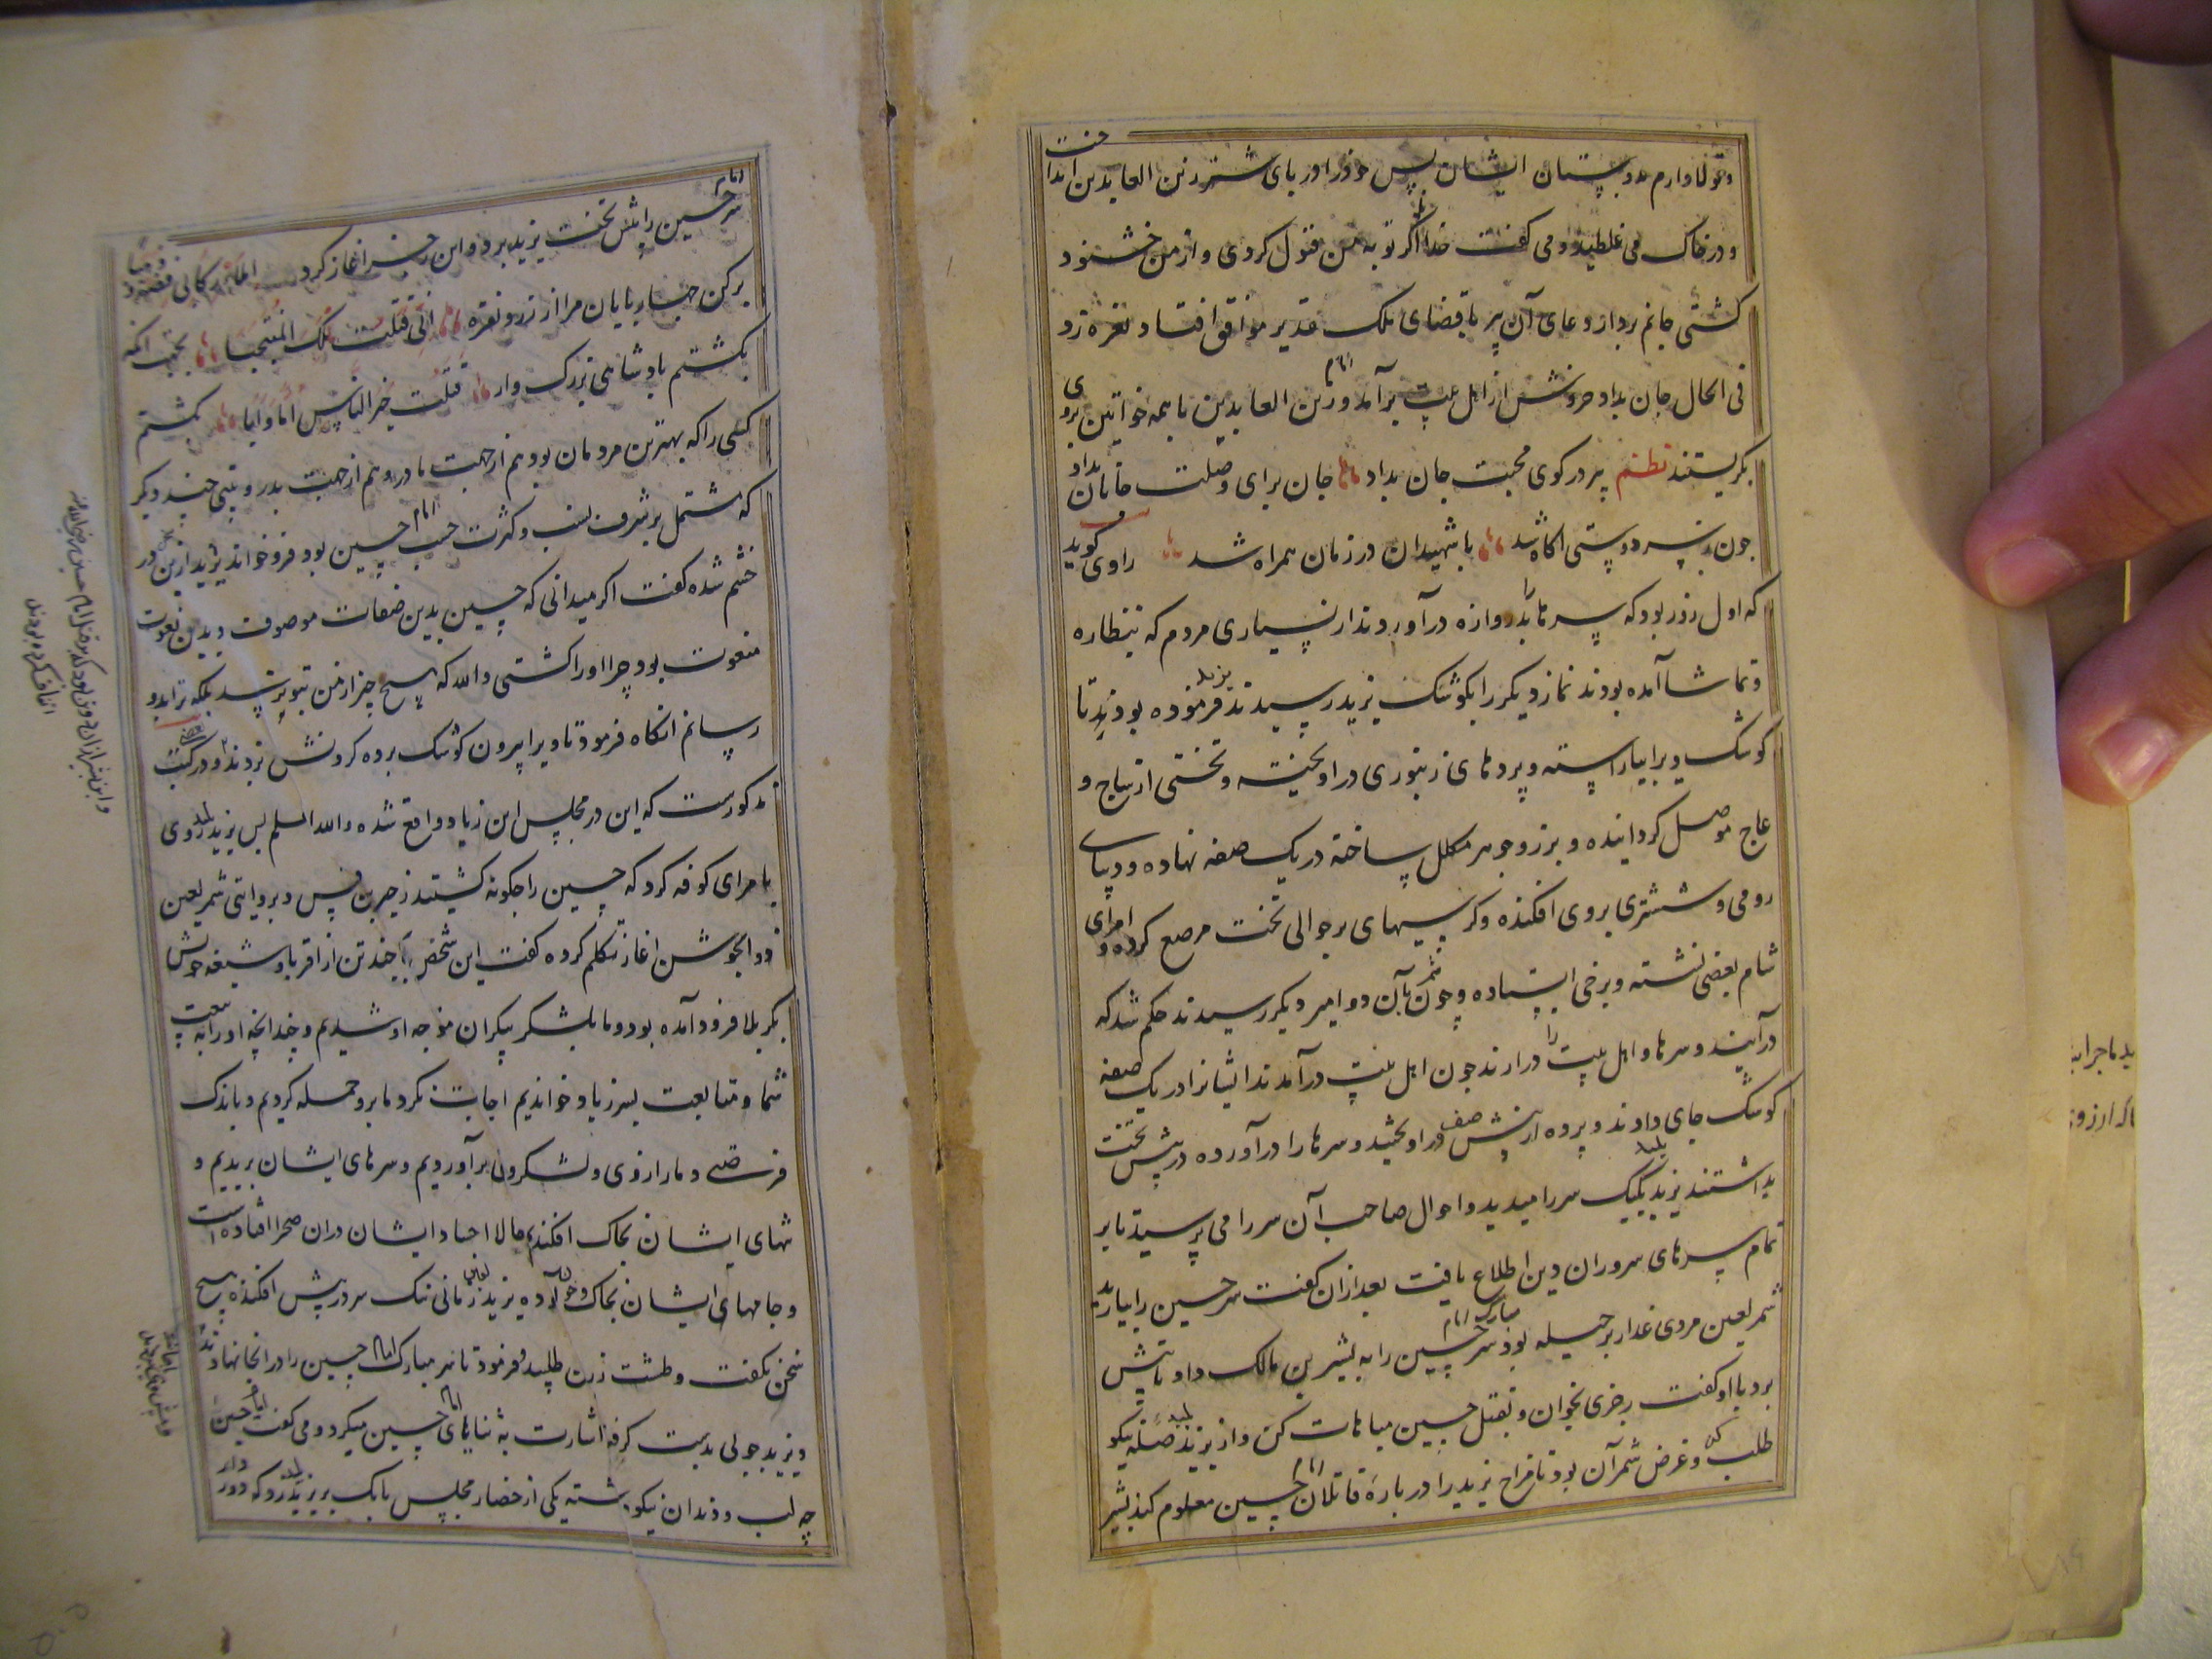 وتولا دارم بدوستان ایشان پس خود را در پای شتر زین العابدین انداخت
و در خاک می غلطید و می گفت خدایا اگر توبه من قبول کردی و از من خشنود
گشتی جانم بردار دعای آن پیر با قضای ملک قدیر موافق افتاد نعره زد
فی الحال جان بداد خروش از اهل بیت برآمد و امام زین العابدین با همه خواتین بروی
بگریستند نظم پیر در کوی محبت جان بداد جان برای وصلت جانان بداد
چون ز سر دوستی آگاه شد با شهیدان در زمان همراه شد راوی گوید
که اول روز بود که سرها را بدروازه درآوردند از بسیاری مردم که بنظاره
و تماشا آمده بودند نماز دیگر را بکوشک یزید رسیدند یزید فرموده بود تا
کوشک ویرا بیاراسته و پردهای زنبوری در آویخته و تختی از ساج و
عاج موصل کردانیده و بزر و جوهر مکلل ساخته در یک صفه نهاده و دیبای
رومی و ششتری بروی افکنده و کرسیهای بر حوالی تخت مرصع کرده و امرای
شام بعضی نشسته و برخی ایستاده و چون شمر با آن دو امیر دیگر رسیدند حکم شد که
درآیند و سرها و اهل بیت را درارند چون اهل بیت درآمدند ایشانرا در یک صفه
کوشک جای دادند و پرده از پیش صف در اویختند و سرها را درآورده در پیش تخت
بداشتند یزید پلید یکیک سر را میدید و احوال صاحب آن سر را می پرسید تا بر
تمام سرهای سروران دین اطلاع یافت بعد ازان گفت سر حسین را بیارید
شمر لعین مردی غدار پر حیله بود سر مبارک امام حسین را به بشیر بن مالک داد تا پیش
برد با او گفت رجزی بخوان و بقتل حسین مباهات کن و از یزید پلید صله نیکو
طلب کن و غرض شمر آن بود تا مزاج یزید را در بارهٔ قاتلان امام حسین معلوم کند بشیر
سر امام حسین را پیش تخت یزید برد و این رجز آغاز کرد املأ رکابی فضة و ذهبا
پر کن چهارپایان مرا از زر و نقره انی قتلت ملک المحتجبا بجهت آنکه
بکشتم پادشاهی بزرک وار قتلت خیر الناس اما و ابا بکشتم
کسی را که بهترین مردمان بود هم از جهت مادر و هم از جهت پدر و بیتی چند دیگر
که مشتمل بر شرف نسب و کثرت حسب امام حسین بود فرو خواند یزید ازین در
خشم شده گفت اکر میدانی که حسین بدین صفات موصوف و بدین نعوت
منعوت بود چرا او را کشتی والله که هیچ چیز از من بتو نرسد بلکه ترا بدو
رسانم انکاه فرمود تا ویرا بیرون کوشک برده کردنش بزدند و در کتب
مذکورست که این در مجلس ابن زیاد واقع شده والله اعلم پس یزید پلید روی
بامرای کوفه کرد که حسین را چگونه کشتید زحر بن قیس و بروایتی شمر لعین
ذو الجوشن آغاز تکلم کرده گفت این شخص با چند تن از اقربا و شیعه خویش
بکربلا فرود آمده بود و ما بلشکر بیکران متوجه او شدیم و چندانچه او را به بیعت
شما و متابعت پسر زیاد خواندیم اجابت نکرد ما بر و حمله کردیم و باندک
فرصتی دمار از وی و لشکر وی برآوردیم و سرهای ایشان بریدیم و
تنهای ایشان بخاک افکندیم حالا اجساد ایشان دران صحرا افتاده است
و جامهای ایشان بخاک و خون آلوده یزید لعین زمانی نیک سر در پیش افکنده هیچ
سخن نگفت و طشت زرین طلبید و فرمود تا سر مبارک امام حسین را در انجا نهادند
و یزید چوبی بدست گرفه اشارت به ثنایای امام حسین میکرد و می گفت امام حسین
چه لب و دندان نیکو داشته یکی از حضار مجلس بانک بر یزید پلید زد که دور دار